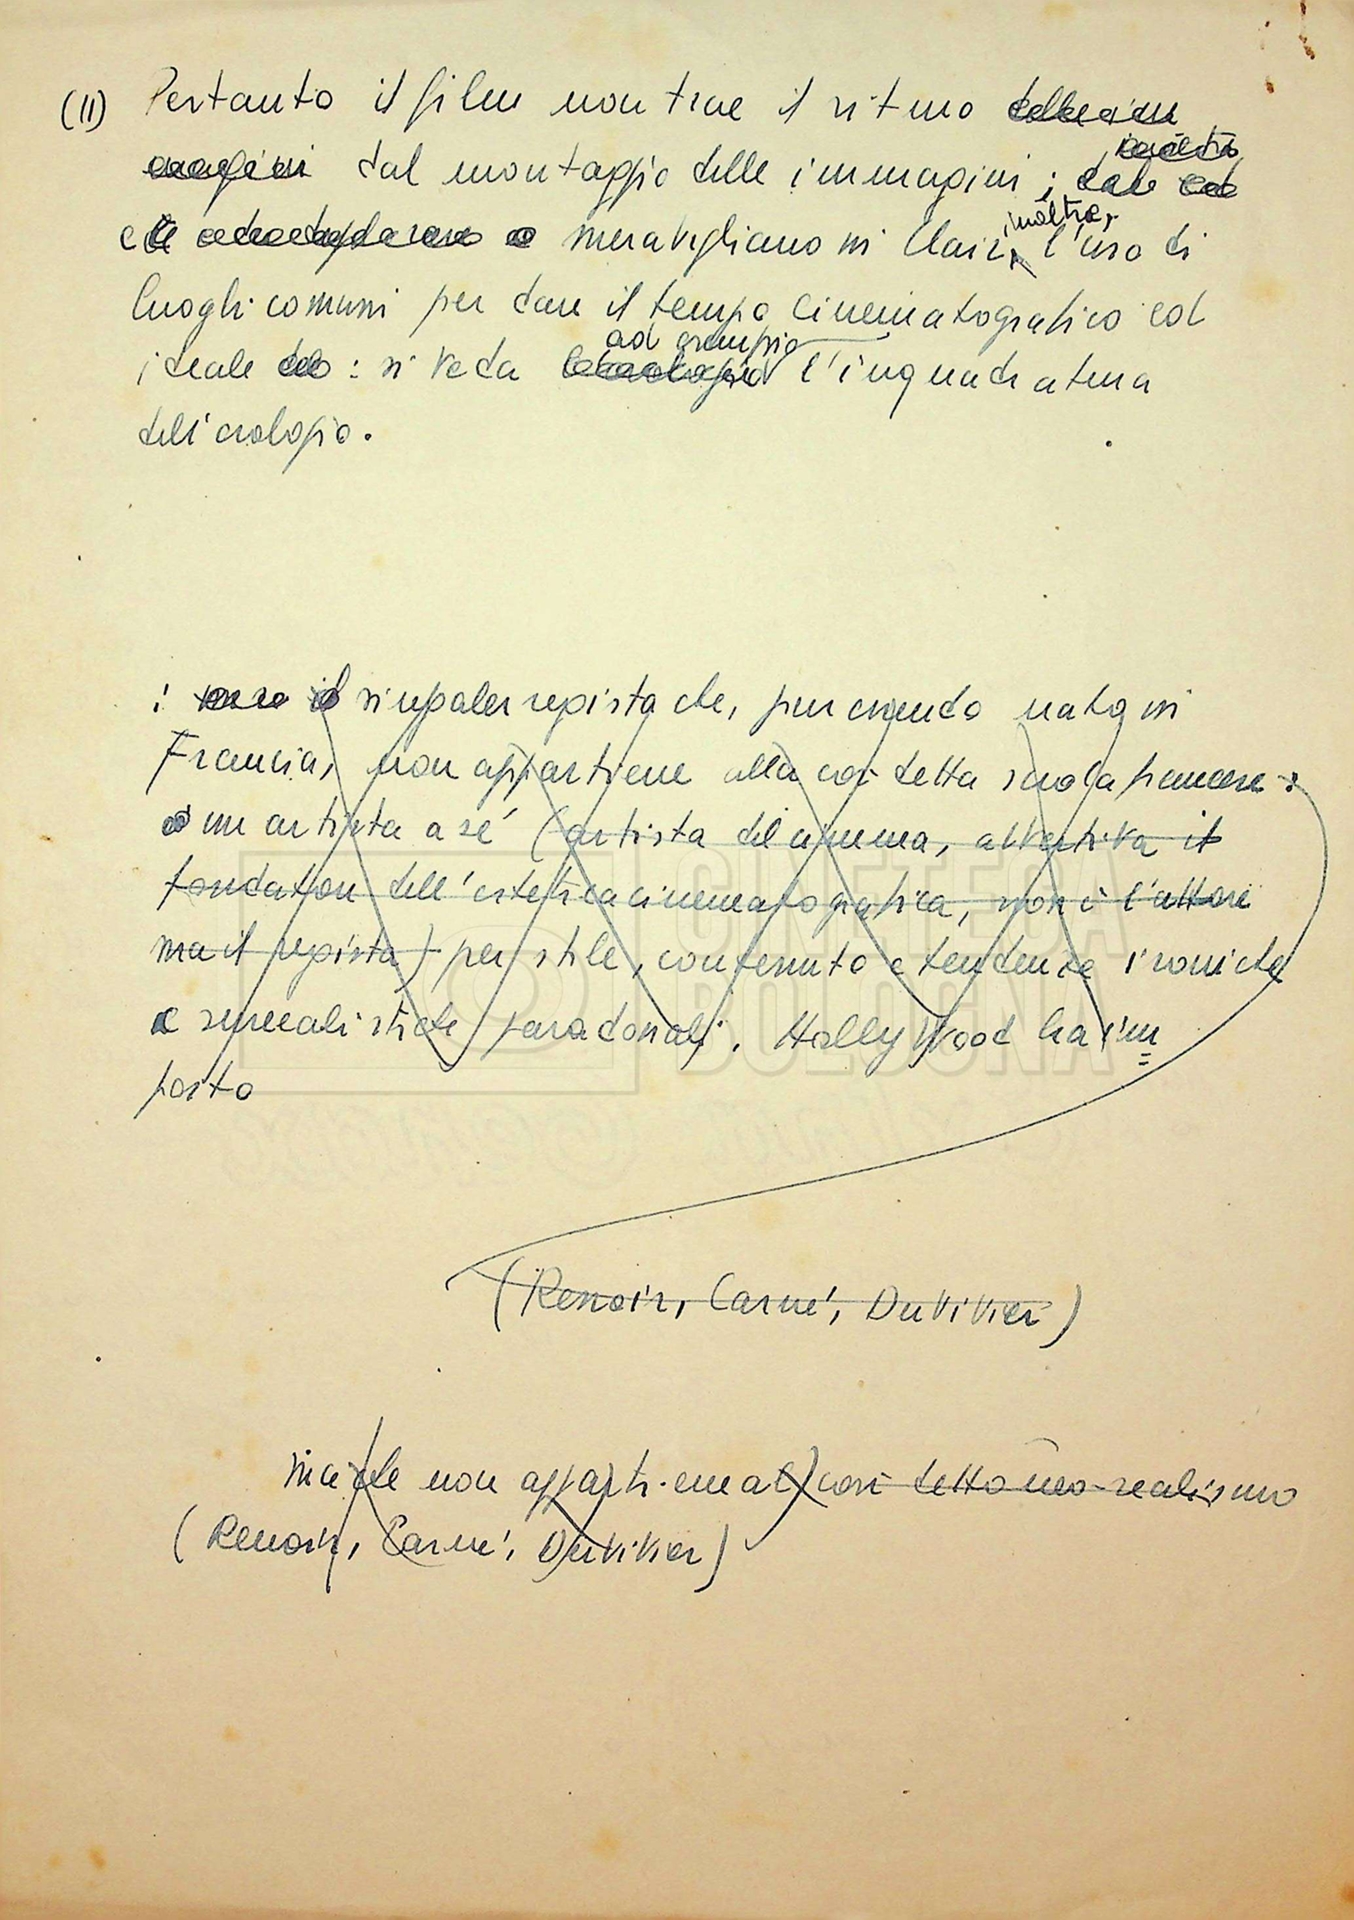 (II) Pertanto il film non trae il ritmo delle im
magini dal montaggio delle immagini;
e meravigliano in Clair, inoltre, l'uso di
luoghi comuni per dare il tempo cinematografico ed
ideale : si veda ad esempio l'inquadratura
dell'orologio.
: singolar regista che, pur essendo nato in
Francia, non appartiene alla così detta scuola francese:
è un artista a sé (artista del cinema, avvertiva il
fondatore dell'estetica cinematografica, non è l'attore
ma il regista) per stile, contenuto e tendenze ironiche
e surrealistiche paradossali. HollyWood ha im
posto
(Renoir, Carné, Duvivier)
ma che non appartiene al così detto neo-realismo
(Renoir, Carné, Duvivier)
CINETECA
BOLOGNA